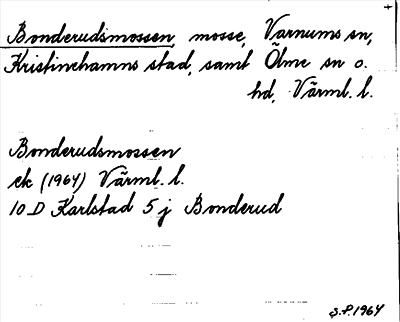 Bonderudsmossen, mosse, Varnums sn,
Kristinehamns stad, samt Ölme sn o.
hd, Värml. l.
Bonderudsmossen
ek (1964) Värml. l.
10 D Karlstad 5 j Bonderud
S.P. 1964